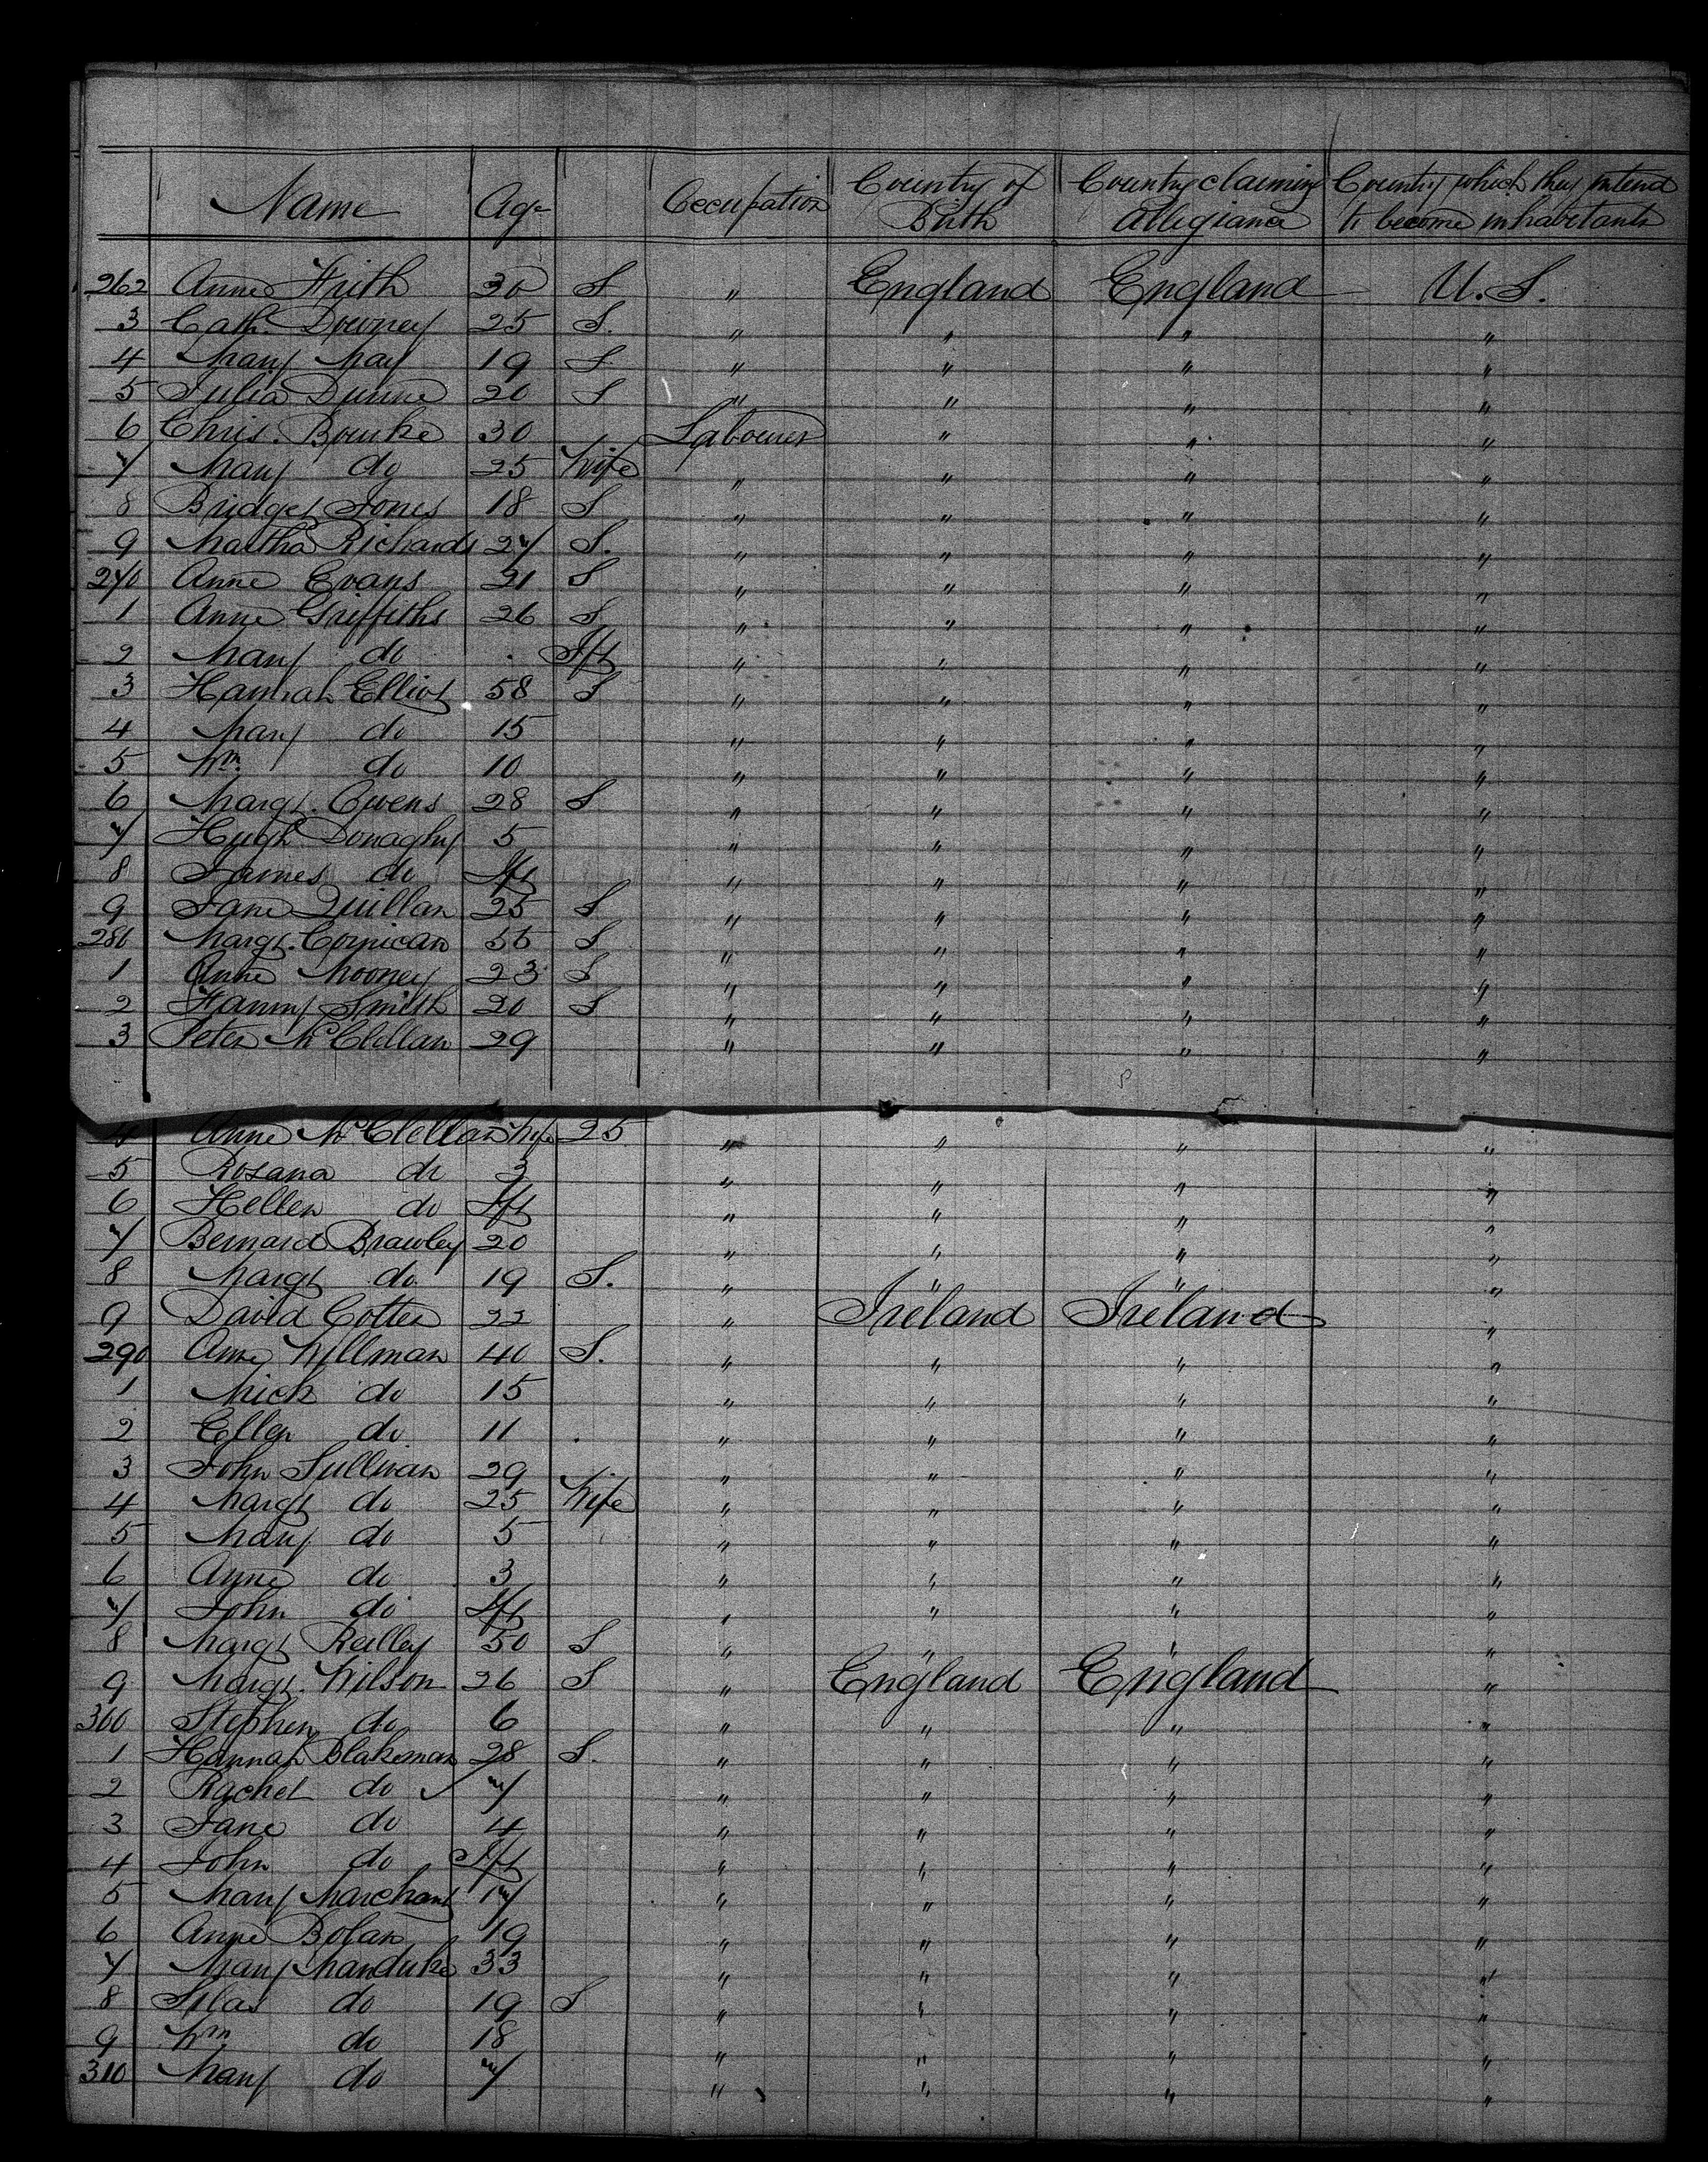 Name Age Occupation Country of Birth Country claiming allegiance Country which they intend to become inhabitants
262 Anne Frith 30 S " England England U.S.
3 Cath. Downey 25 S. " " " "
4 Mary May 19 S " " " "
5 Julia Dunne 20 S " " " "
6 Chris. Bourke 30 Labourer " " "
7 Mary do 25 Wife " " " "
8 Bridget Jones 18 S " " " "
9 Martha Richards 27 S. " " " "
270 Anne Evans 21 S " " " "
1 Anne Griffiths 26 S " " " "
2 Mary do Ift " " " "
3 Hannah Elliot 58 S " " " "
4 Mary do 15 " " " "
5 Wm do 10 " " " "
6 Margt. Owens 28 S " " " "
7 Hugh Donaghy 5 " " " "
8 James do Ift " " " "
9 Jane Quillan 25 S " " " "
280 Margt. Cornican 55 S " " " "
1 Anne Mooney 23 S " " " "
2 Fanny Smith 20 S " " " "
3 Peter McClellan 29 " " " "
4 Anne McClellan Wife 25 " " " "
5 Rosana do 3 " " " "
6 Hellen do Ift " " " "
7 Bernard Brawley 20 " " " "
8 Margt do 19 S. " " " "
9 David Cotter 22 " Ireland Ireland "
290 Anne Willman 40 S. " " " "
1 Mick do 15 " " " "
2 Ellen do 11 " " " "
3 John Sullivan 29 " " " "
4 Margt do 25 Wife " " " "
5 Mary do 5 " " " "
6 Anne do 3 " " " "
7 John do Ift " " " "
8 Margt Reilley 50 S " " " "
9 Margt. Wilson 26 S " England England "
300 Stephen do 6 " " " "
1 Hannah Blakeman 28 S. " " " "
2 Rachel do ✓ 7 " " " "
3 Jane do 4 " " " "
4 John do Ift " " " "
5 Mary Marchant 17 " " " "
6 Anne Bolan 19 " " " "
7 Mary Manduke 33 " " " "
8 Silas do 19 S " " " "
9 Wm do 18 " " " "
310 Mary do 7 " " " "